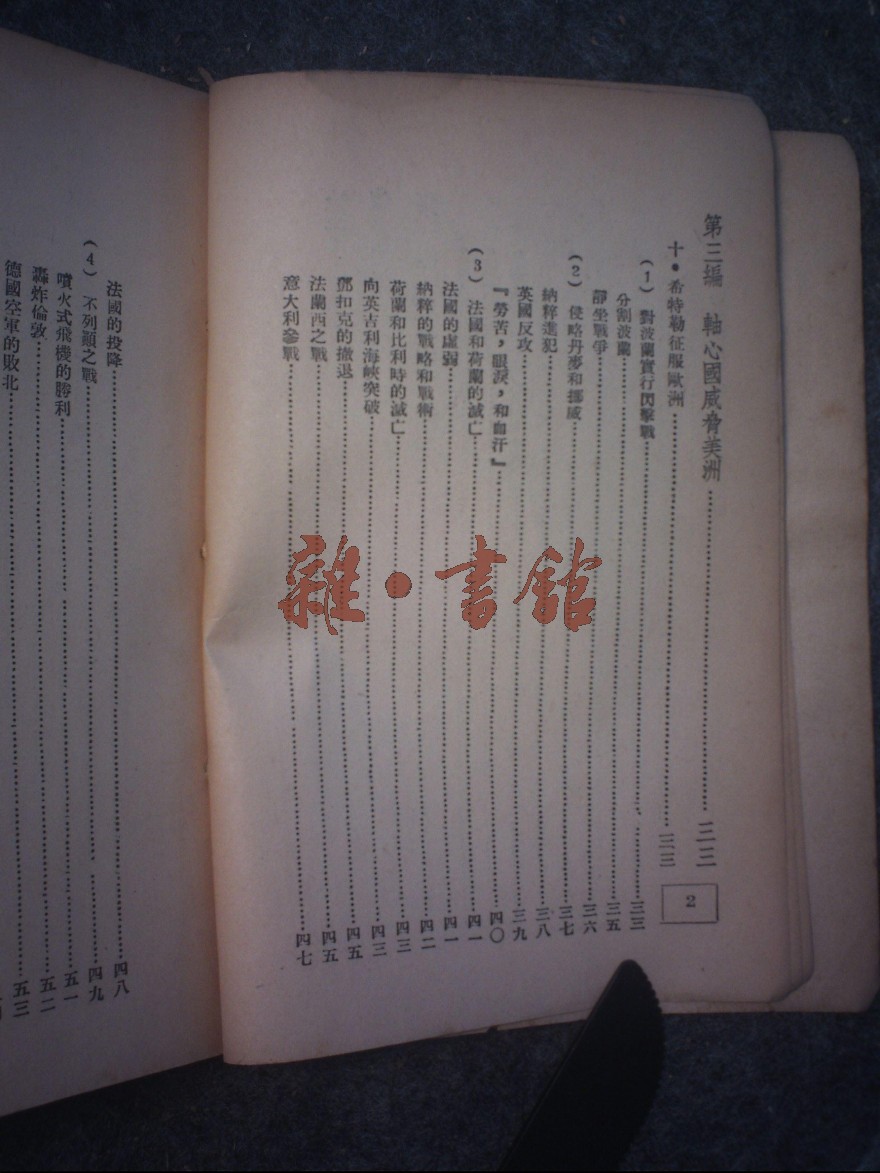 第三編　軸心國威脅美洲………三三
十·希特勒征服歐洲………三三
(1)　對波蘭實行閃擊戰………三三
分割波蘭………三五
靜坐戰爭………三六
(2)　侵略丹麥和挪威………三七
納粹進犯………三八
英國反攻………三九
『勞苦，眼淚，和血汗』………四〇
(3)　法國和荷蘭的滅亡………四一
法國的虛弱………四一
納粹的戰略和戰術………四二
荷蘭和比利時的滅亡………四三
向英吉利海峽突破………四三
鄧扣克的撤退………四五
法蘭西之戰………四五
意大利參戰………四七
2
法國的投降………四八
(4)　不列顛之戰………四九
噴火式飛機的勝利………五一
轟炸倫敦………五二
德國空軍的敗北………五三
雜·書館